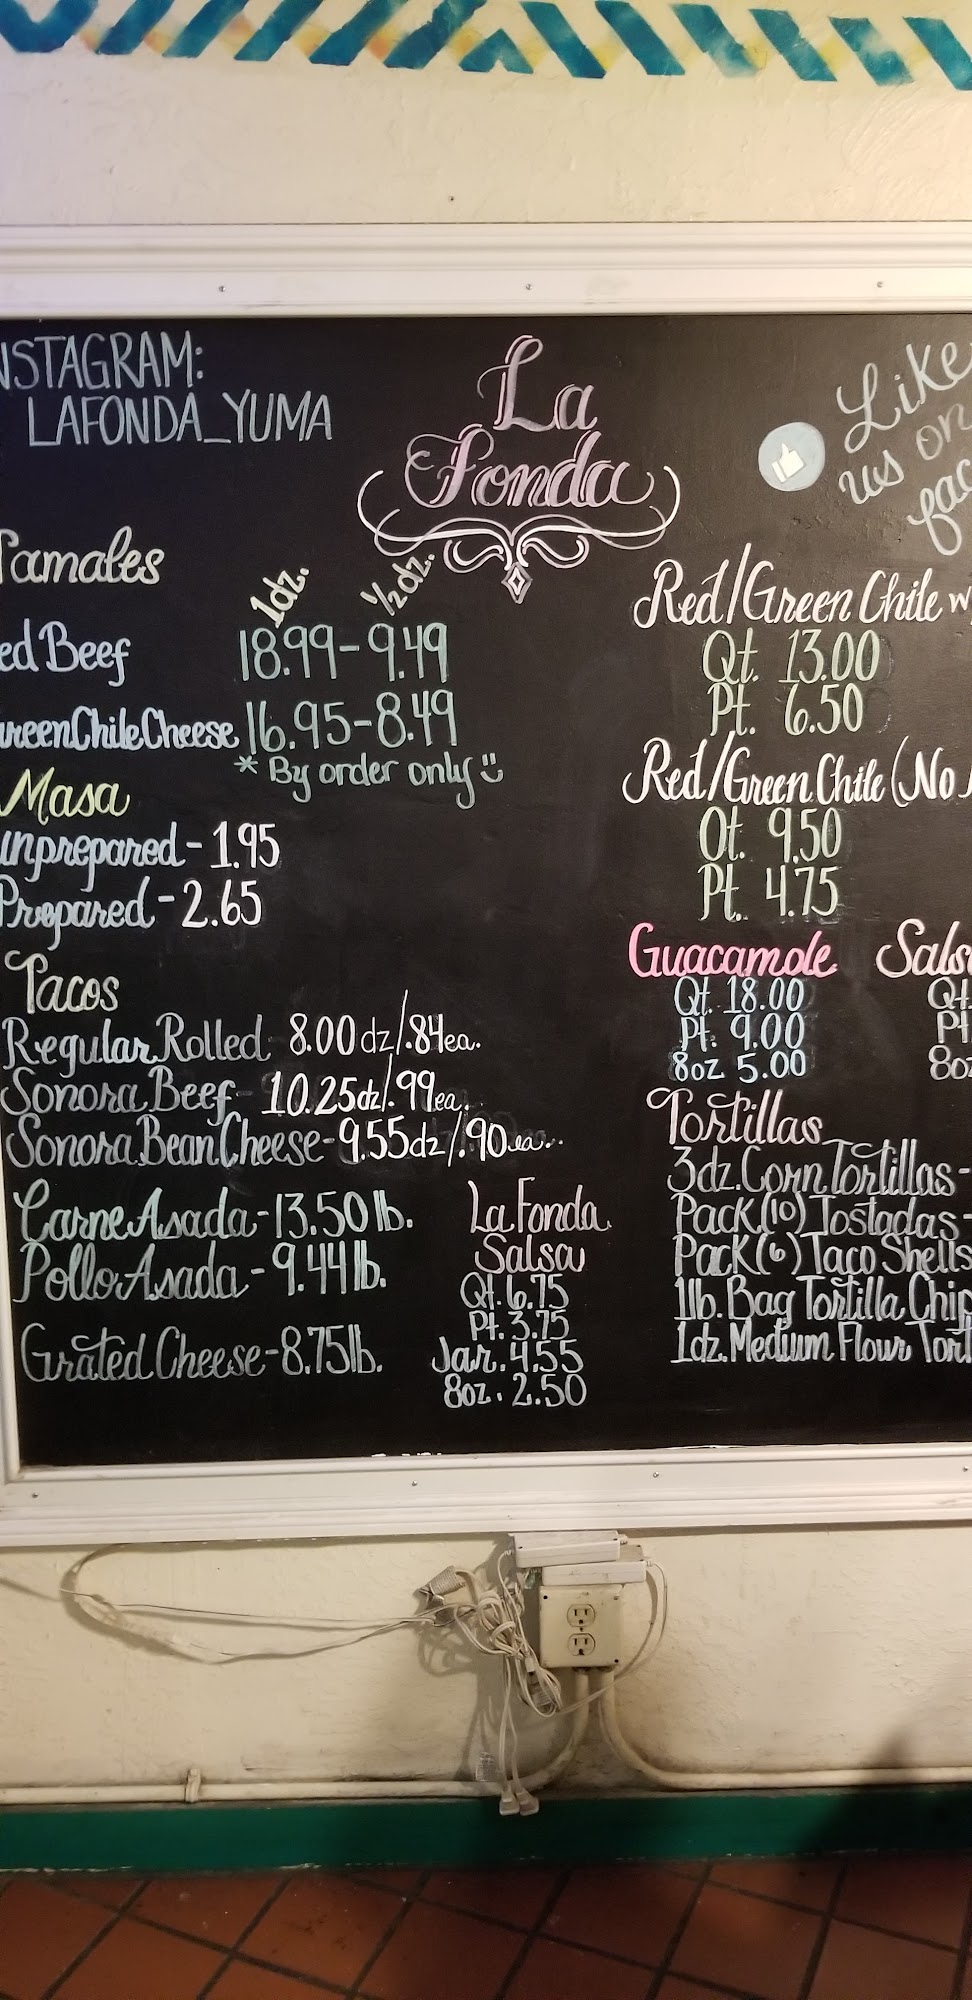 NSTAGRAM:
LAFONDA_YUMA
La
Fonda
Like
us on
fac
Tamales
1dz. ½dz.
ed Beef 18.99-9.49
reenChileCheese 16.95-8.49
* By order only
Masa
unprepared-1.95
Prepared-2.65
Tacos
Regular Rolled 8.00dz/.84ea.
Sonora Beef-10.25dz/.99ea.
Sonora Bean Cheese-9.55dz/.90ea..
Carne Asada-13.50lb.
Pollo Asada-9.44lb.
Grated Cheese-8.75lb.
La Fonda
Salsa
Qt. 6.75
Pt. 3.75
Jar. 4.55
8oz. 2.50
Red/Green Chile w
Qt. 13.00
Pt. 6.50
Red/Green Chile (No
Qt. 9.50
Pt. 4.75
Guacamole
Qt. 18.00
Pt. 9.00
8oz 5.00
Sals
Qt.
Pt
8oz
Tortillas
3dz. Corn Tortillas-
Pack (10) Tostadas-
Pack (6) Taco Shells
1lb. Bag Tortilla Chip
1dz. Medium Flour Tort